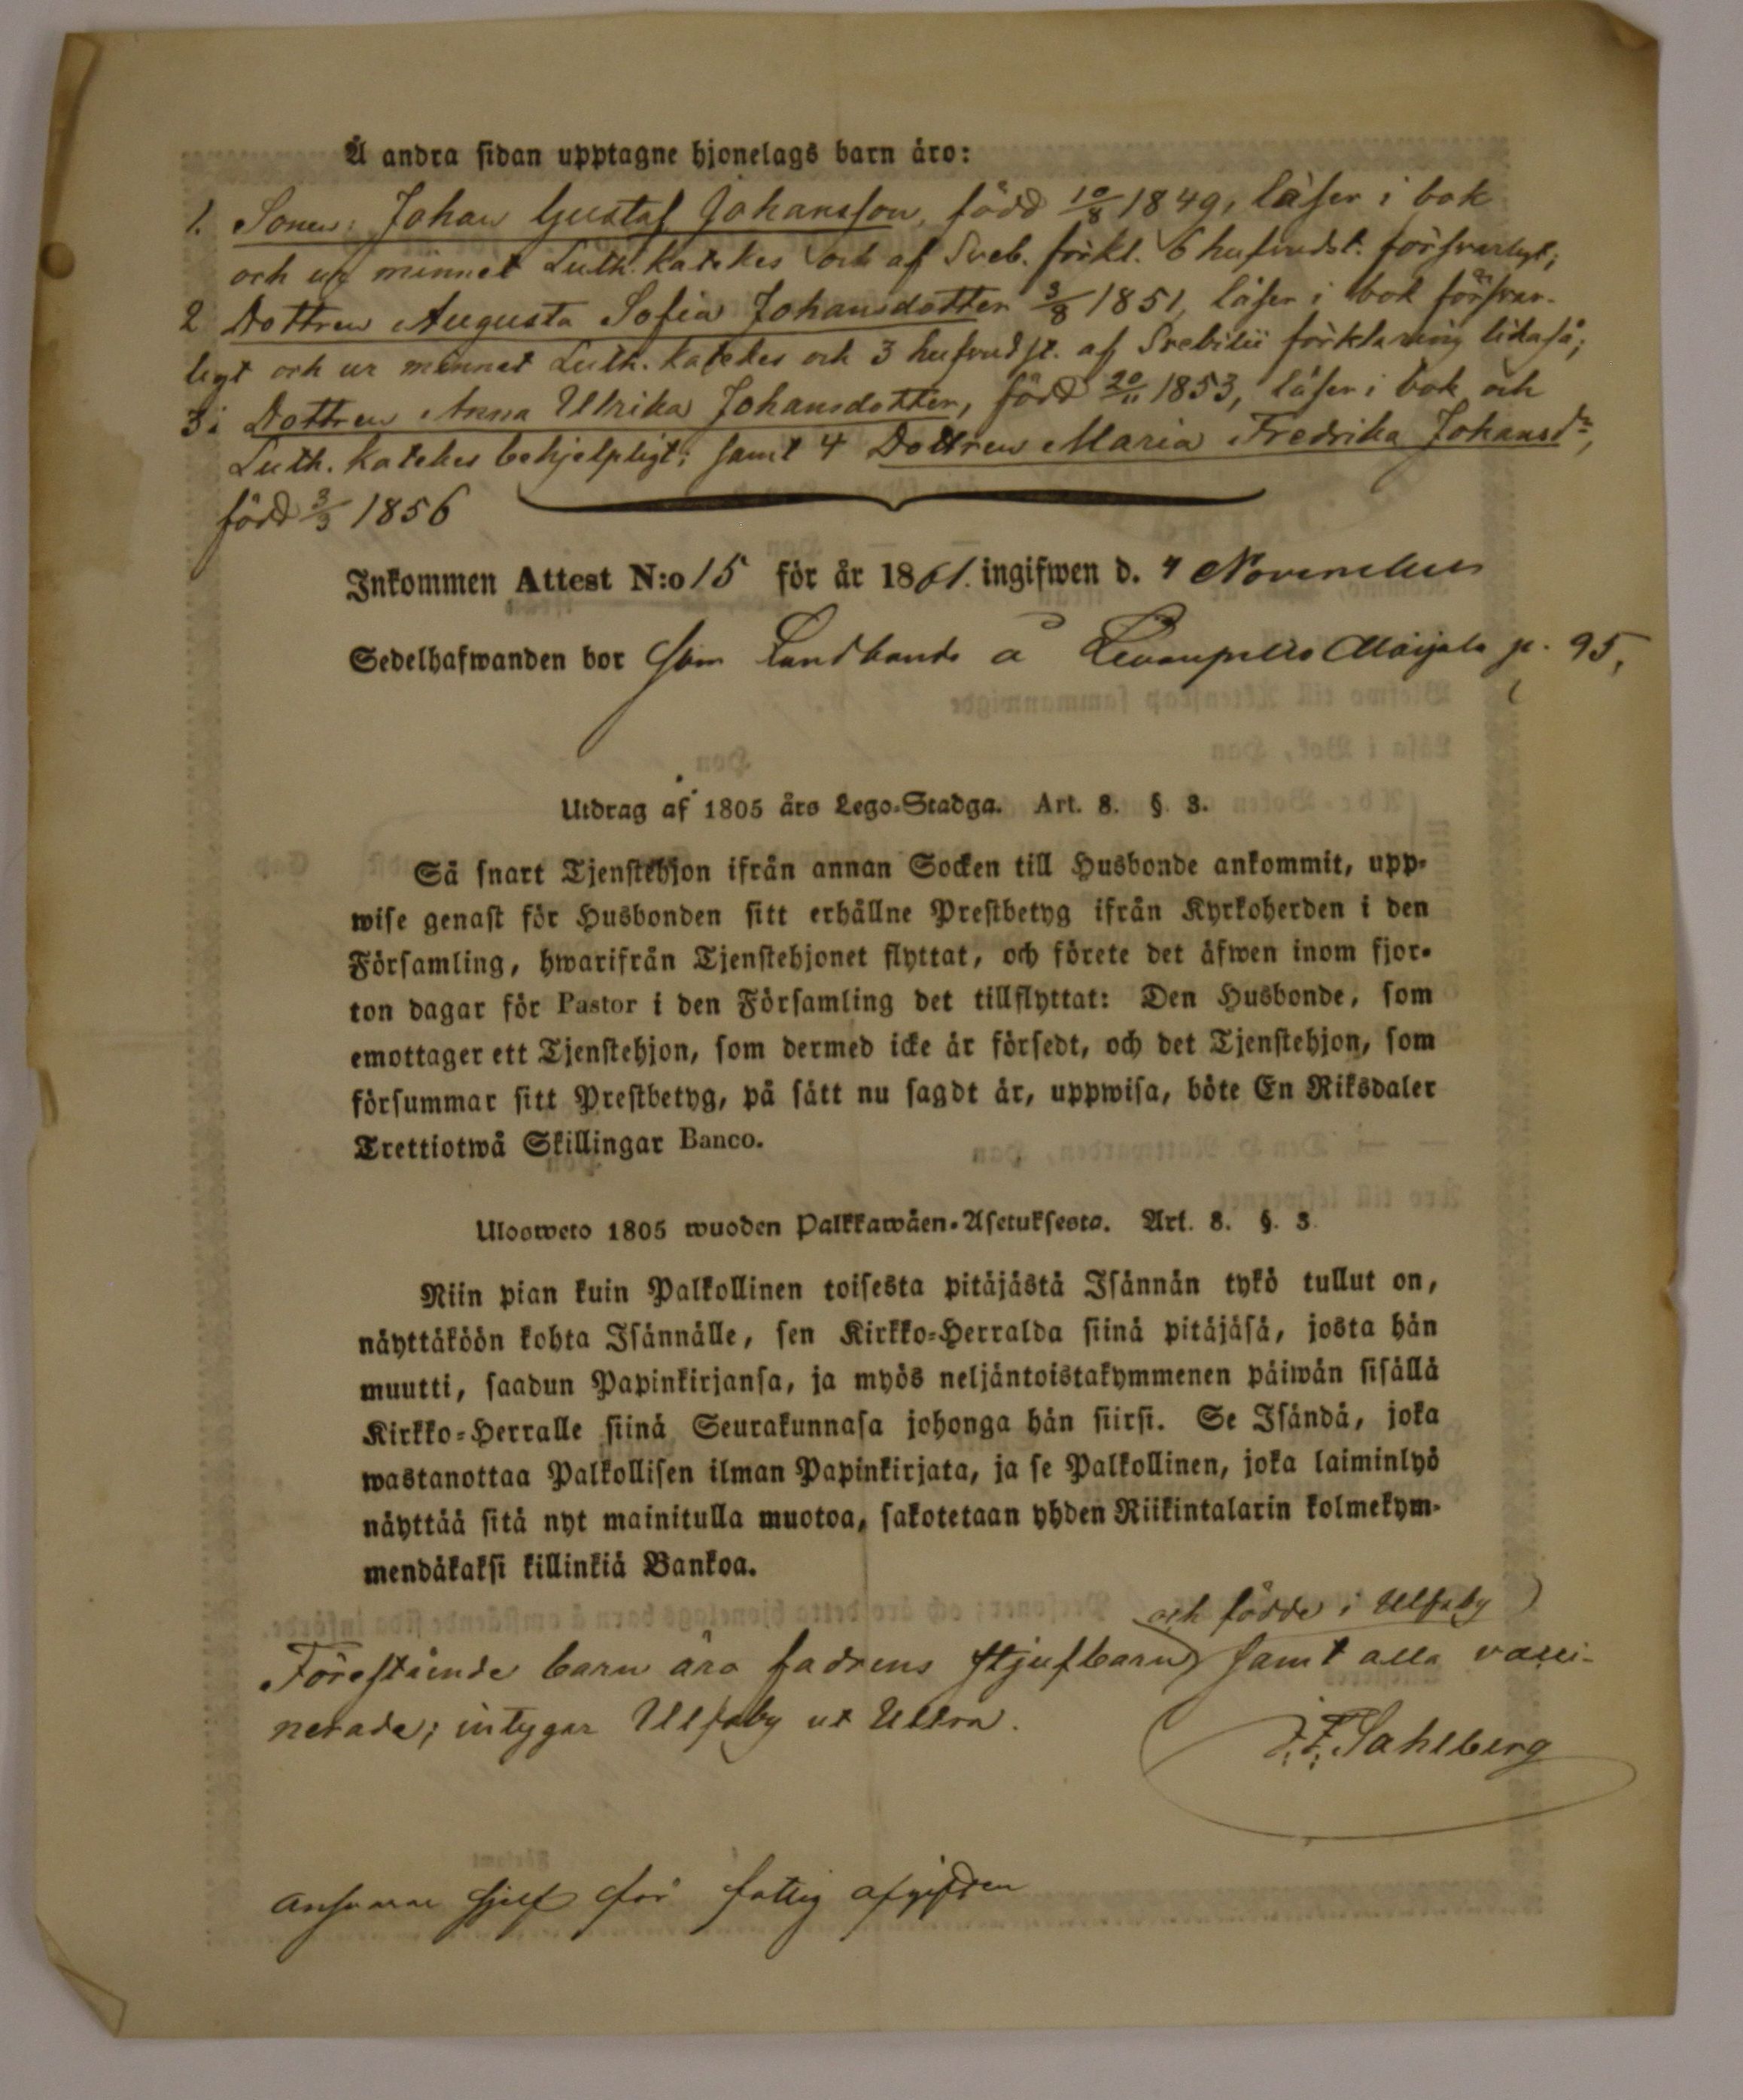 Å andra sidan upptagne hjonelags barn äro:
1. Sonen: Johan Gustaf Johansson, född 10/8 1849, läser i bok
och ur minnet Luth. katekes och af Sveb. förkl. 6 hufvudst. försvarligt;
2 Dottren Augusta Sofia Johansdotter 3/8 1851, läser i bok försvar-
ligt och ur minnet Luth. katekes och 3 hufvudst. af Svebilii förklaring likaså;
3: Dottren Anna Ulrika Johansdotter, född 20/11 1853, läser i bok och
Luth. katekes behjelpligt; samt 4 Dottren Maria Fredrika Johansdr,
född 3/3 1856
Inkommen Attest N:o 15 för år 1861. ingifwen d. 4 November
Sedelhafwanden bor som Landbonde å Maijala p. 95,
Utdrag af 1805 års Lego-Stadga. Art. 8. §. 3.
Så snart Tjenstehjon ifrån annan Socken till Husbonde ankommit, upp-
wise genast för Husbonden sitt erhållne Prestbetyg ifrån Kyrkoherden i den
Församling, hwarifrån Tjenstehjonet flyttat, och förete det äfwen inom fjor-
ton dagar för Pastor i den Församling det tillflyttat: Den Husbonde, som
emottager ett Tjenstehjon, som dermed icke är försedt, och det Tjenstehjon, som
försummar sitt Prestbetyg, på sätt nu sagdt är, uppwisa, böte En Riksdaler
Trettiotwå Skillingar Banco.
Ulosweto 1805 wuoden Palkkawäen-Asetuksesta. Art. 8. §. 3.
Niin pian kuin Palkollinen toisesta pitäjästä Isännän tykö tullut on,
näyttäköön kohta Isännälle, sen Kirkko-Herralda siinä pitäjäsä, josta hän
muutti, saadun Papinkirjansa, ja myös neljäntoistakymmenen päiwän sisällä
Kirkko-Herralle siinä Seurakunnasa johonga hän siirsi. Se Isändä, joka
wastanottaa Palkollisen ilman Papinkirjata, ja se Palkollinen, joka laiminlyö
näyttää sitä nyt mainitulla muotoa, sakotetaan yhden Riikintalarin kolmekym-
mendäkaksi killinkiä Bankoa.
och födde i Ulfsby
Förestående barn äro fadrens stjufbarn samt alla vacci-
nerade; intygar Ulfsby ut Ultra.
J. F. Sahlberg
ansvarar sjelf för fattig afgiften